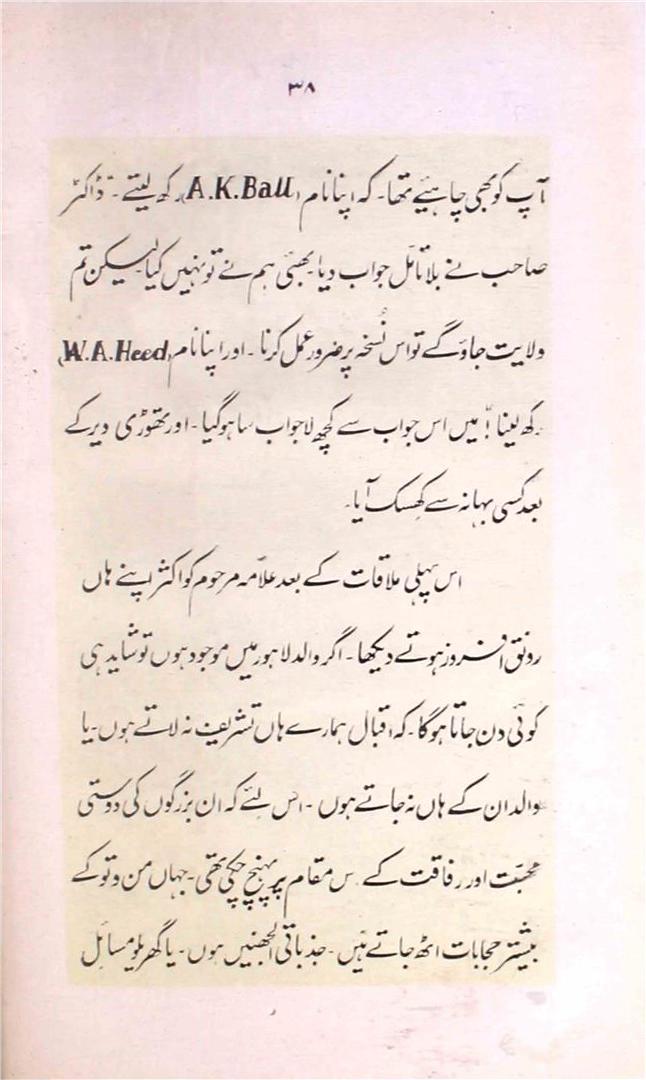 ۳۸
آپ کو بھی چاہیئے تھا۔ کہ اپنا نام (A.K.Ball) رکھ لیتے۔ ڈاکٹر
صاحب نے بلا تامّل جواب دیا۔ بھئی ہم نے تو نہیں کیا۔ لیکن تم
ولایت جاؤ گے تو اس نسخہ پر ضرور عمل کرنا۔ اور اپنا نام (W.A.Heed)
رکھ لینا! میں اس جواب سے کچھ لاجواب سا ہو گیا۔ اور تھوڑی دیر کے
بعد کسی بہانہ سے کھسک آیا۔
اس پہلی ملاقات کے بعد علاّمہ مرحوم کو اکثر اپنے ہاں
رونق افروز ہوتے دیکھا۔ اگر والد لاہور میں موجود ہوں تو شاید ہی
کوئی دن جاتا ہو گا۔ کہ اقبال ہمارے ہاں تشریف نہ لاتے ہوں۔ یا
والد ان کے ہاں نہ جاتے ہوں۔ اس لئے کہ ان بزرگوں کی دوستی
محبّت اور رفاقت کے اس مقام پر پہنچ چکی تھی۔ جہاں من و تو کے
بیشتر حجابات اٹھ جاتے ہیں۔ جذباتی الجھنیں ہوں۔ یا گھریلو مسائل